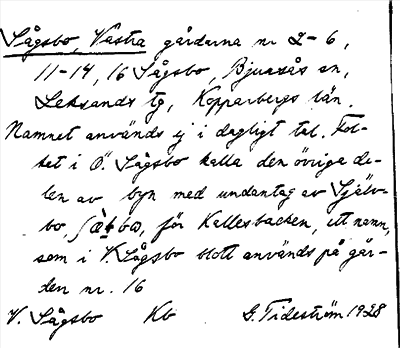 Sågsbo, Västra gårdarna nr 2-6,
11-14, 16 Sågsbo, Bjursås sn,
Leksands tg, Kopparbergs län.
Namnet används ej i dagligt tal. Fol-
ket i Ö. Sågsbo kalla den övriga de-
len av byn med undantag av Själv-
bo, för Kallesbacken, ett namn,
som i V. Sågsbo blott används på går-
den nr. 16
V. Sågsbo Kb G. Tideström 1928